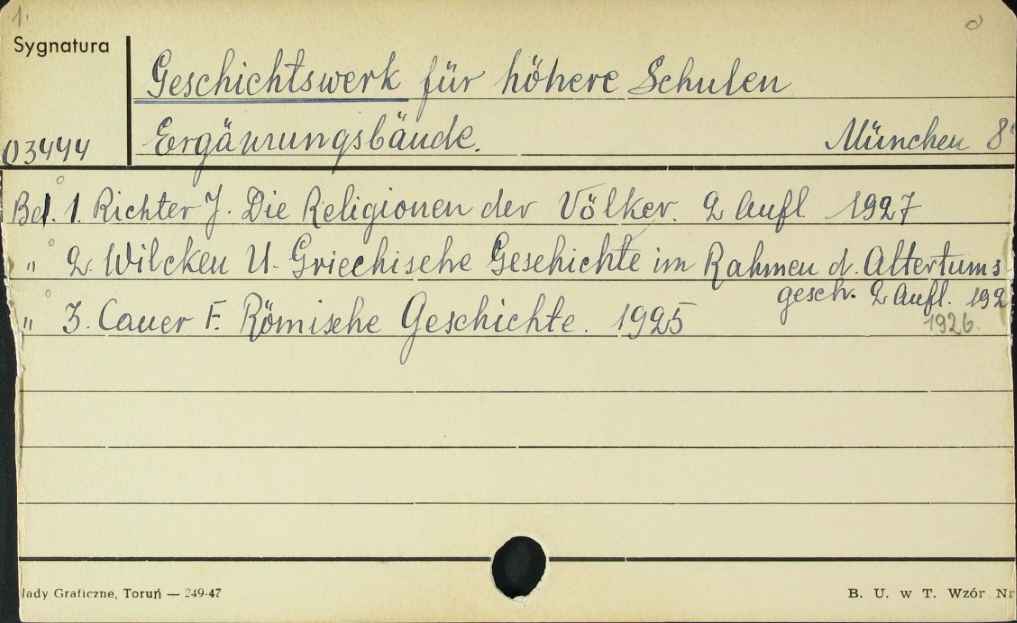 1.
Sygnatura
Geschichtswerk für höhere Schulen
03444 Ergänzungsbände. München 8°
Bd. 1. Richter J. Die Religionen der Völker. 2 Aufl 1927
" 2. Wilcken U. Griechische Geschichte im Rahmen d. Altertums
gesch. 2 Aufl. 192
1926.
" 3. Cauer F. Römische Geschichte. 1925
łady Graficzne, Toruń — 249-47
B. U. w T. Wzór Nr